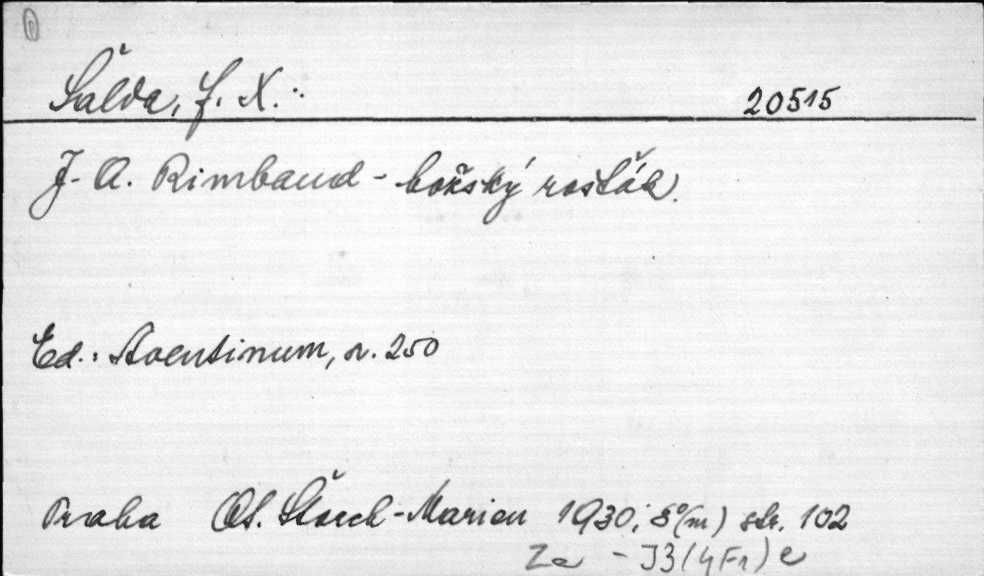 Šalda, F. X.: 20515
J. A. Rimbaud - božský rošťák.
Ed.: Aventinum, sv. 250
Praha Ot. Štorch-Marien 1930; 8°(m) str. 102
Za - J3(4Fr)e